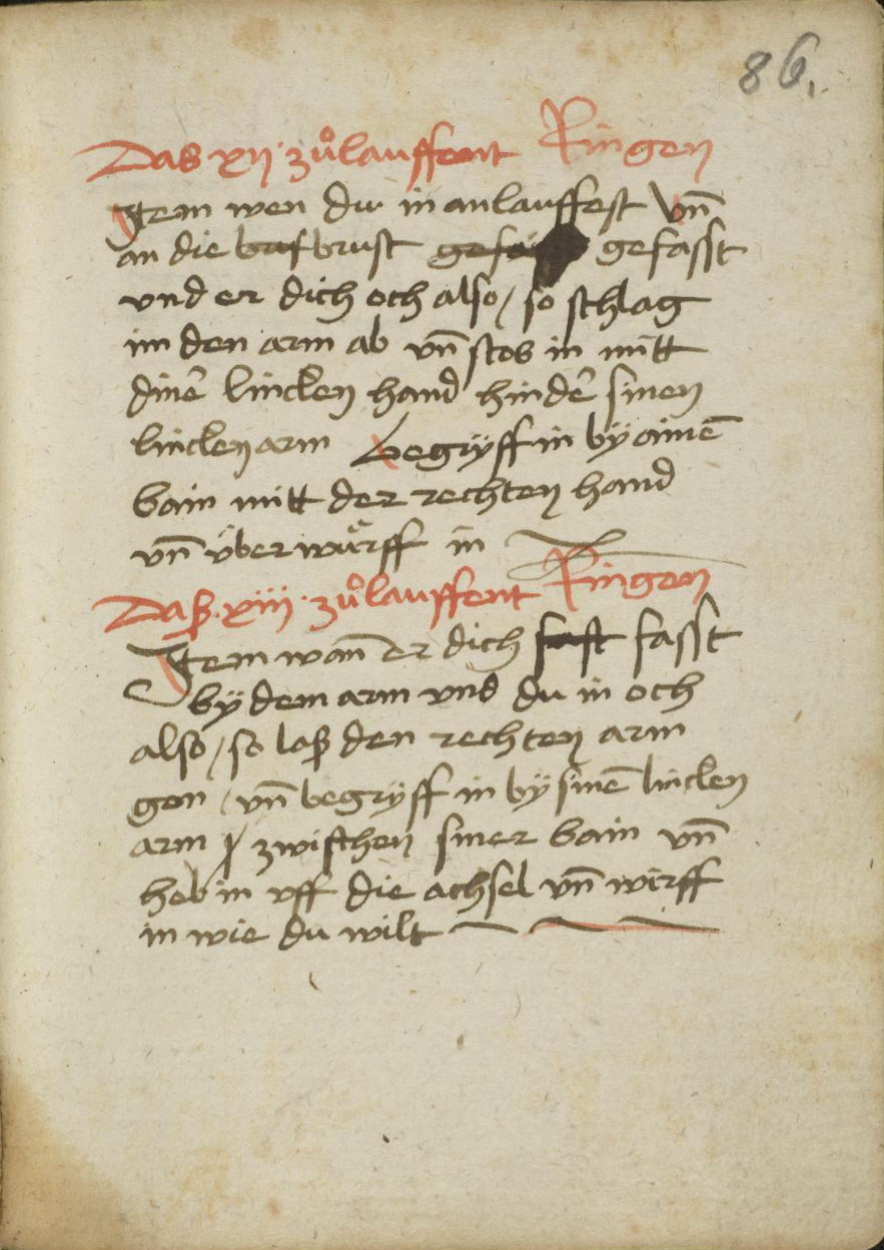 86.
Das xij· zuͦlauffent Ringen
Item wen du in anlauffest vn̄
an die bruf brust gefasst
vnd er dich och also / so schlag
im den arm ab vn̄ stos in mitt
dine᷒ lincken hand hinde᷒ sinen
lincken arm Begryff in bÿ ainē
bain mitt der rechten hand
vn̄ überwürff in
Daß ·xiii· zuͦlauffent Ringen
Item wan̄ er dich fast fasst
bÿ dem arm vnd du in och
also / so laß den rechten arm
gon / vn̄ begryff in bÿ sinē lincken
arm zwischen siner bain vn̄
heb in vff die achsel vn̄ wirff
in wie du wilt